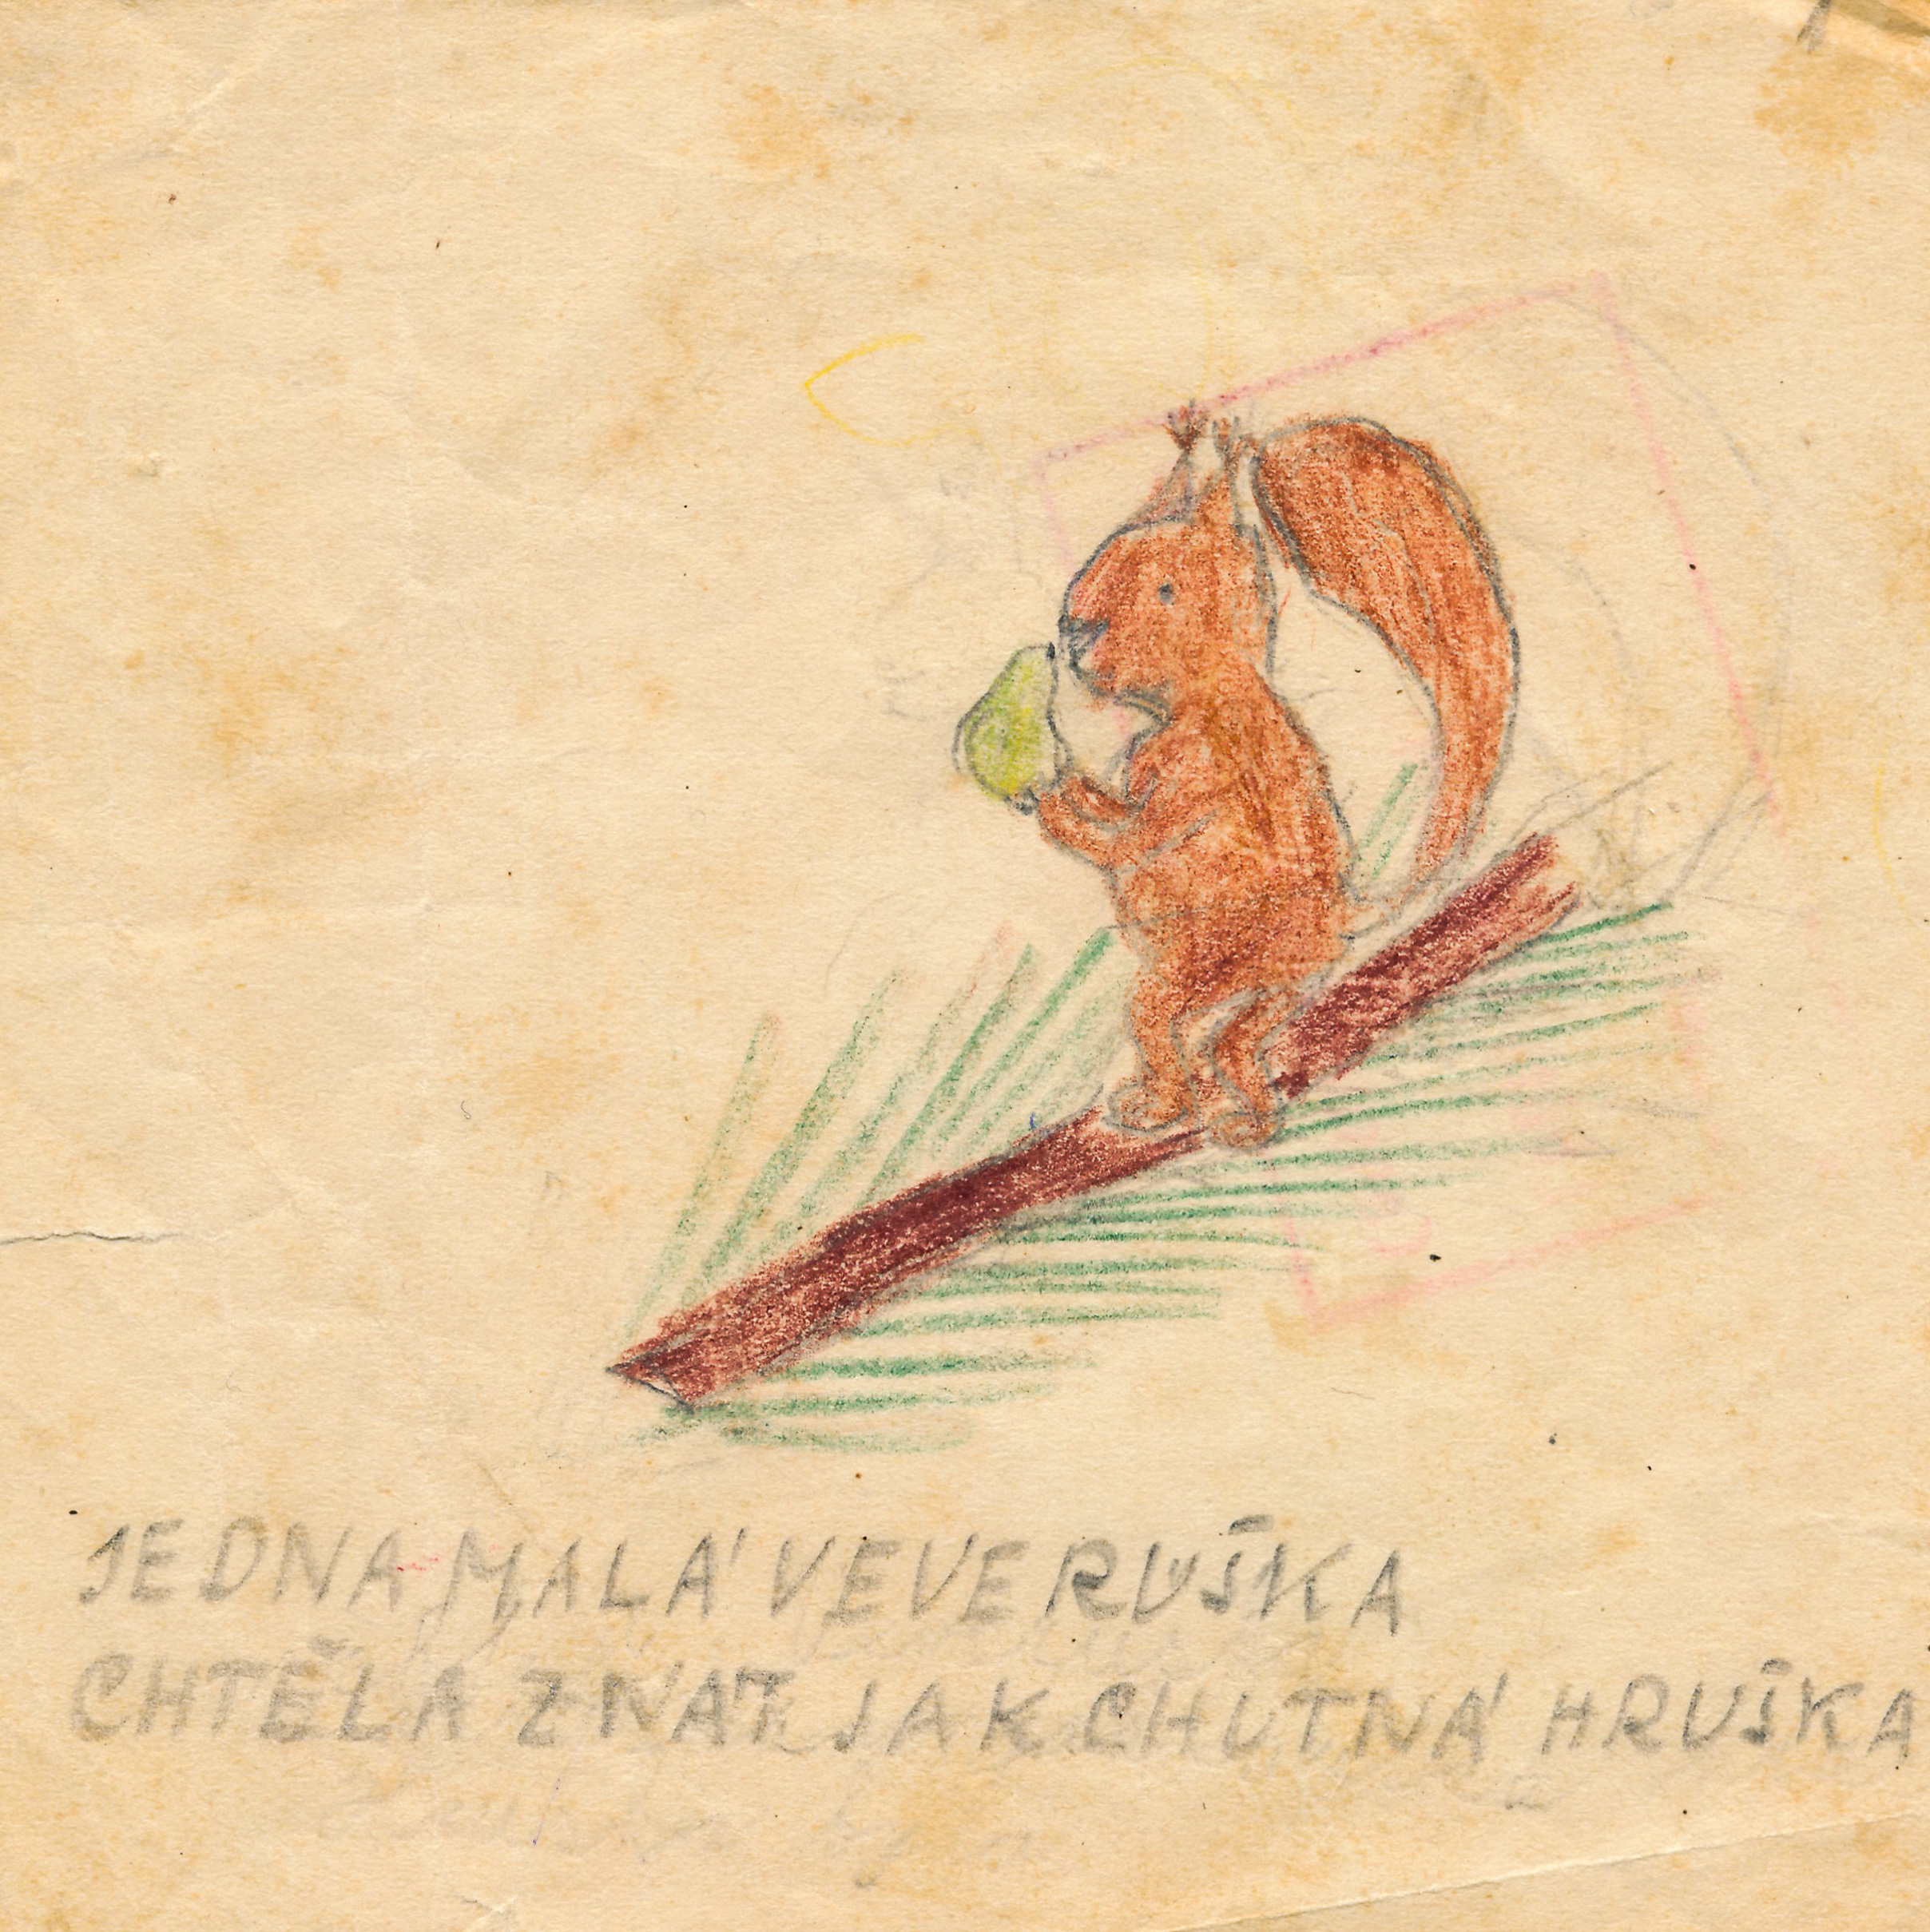 JEDNA MALÁ VEVERUŠKA
CHTĚLA ZNÁT JAK CHUTNÁ HRUŠKA